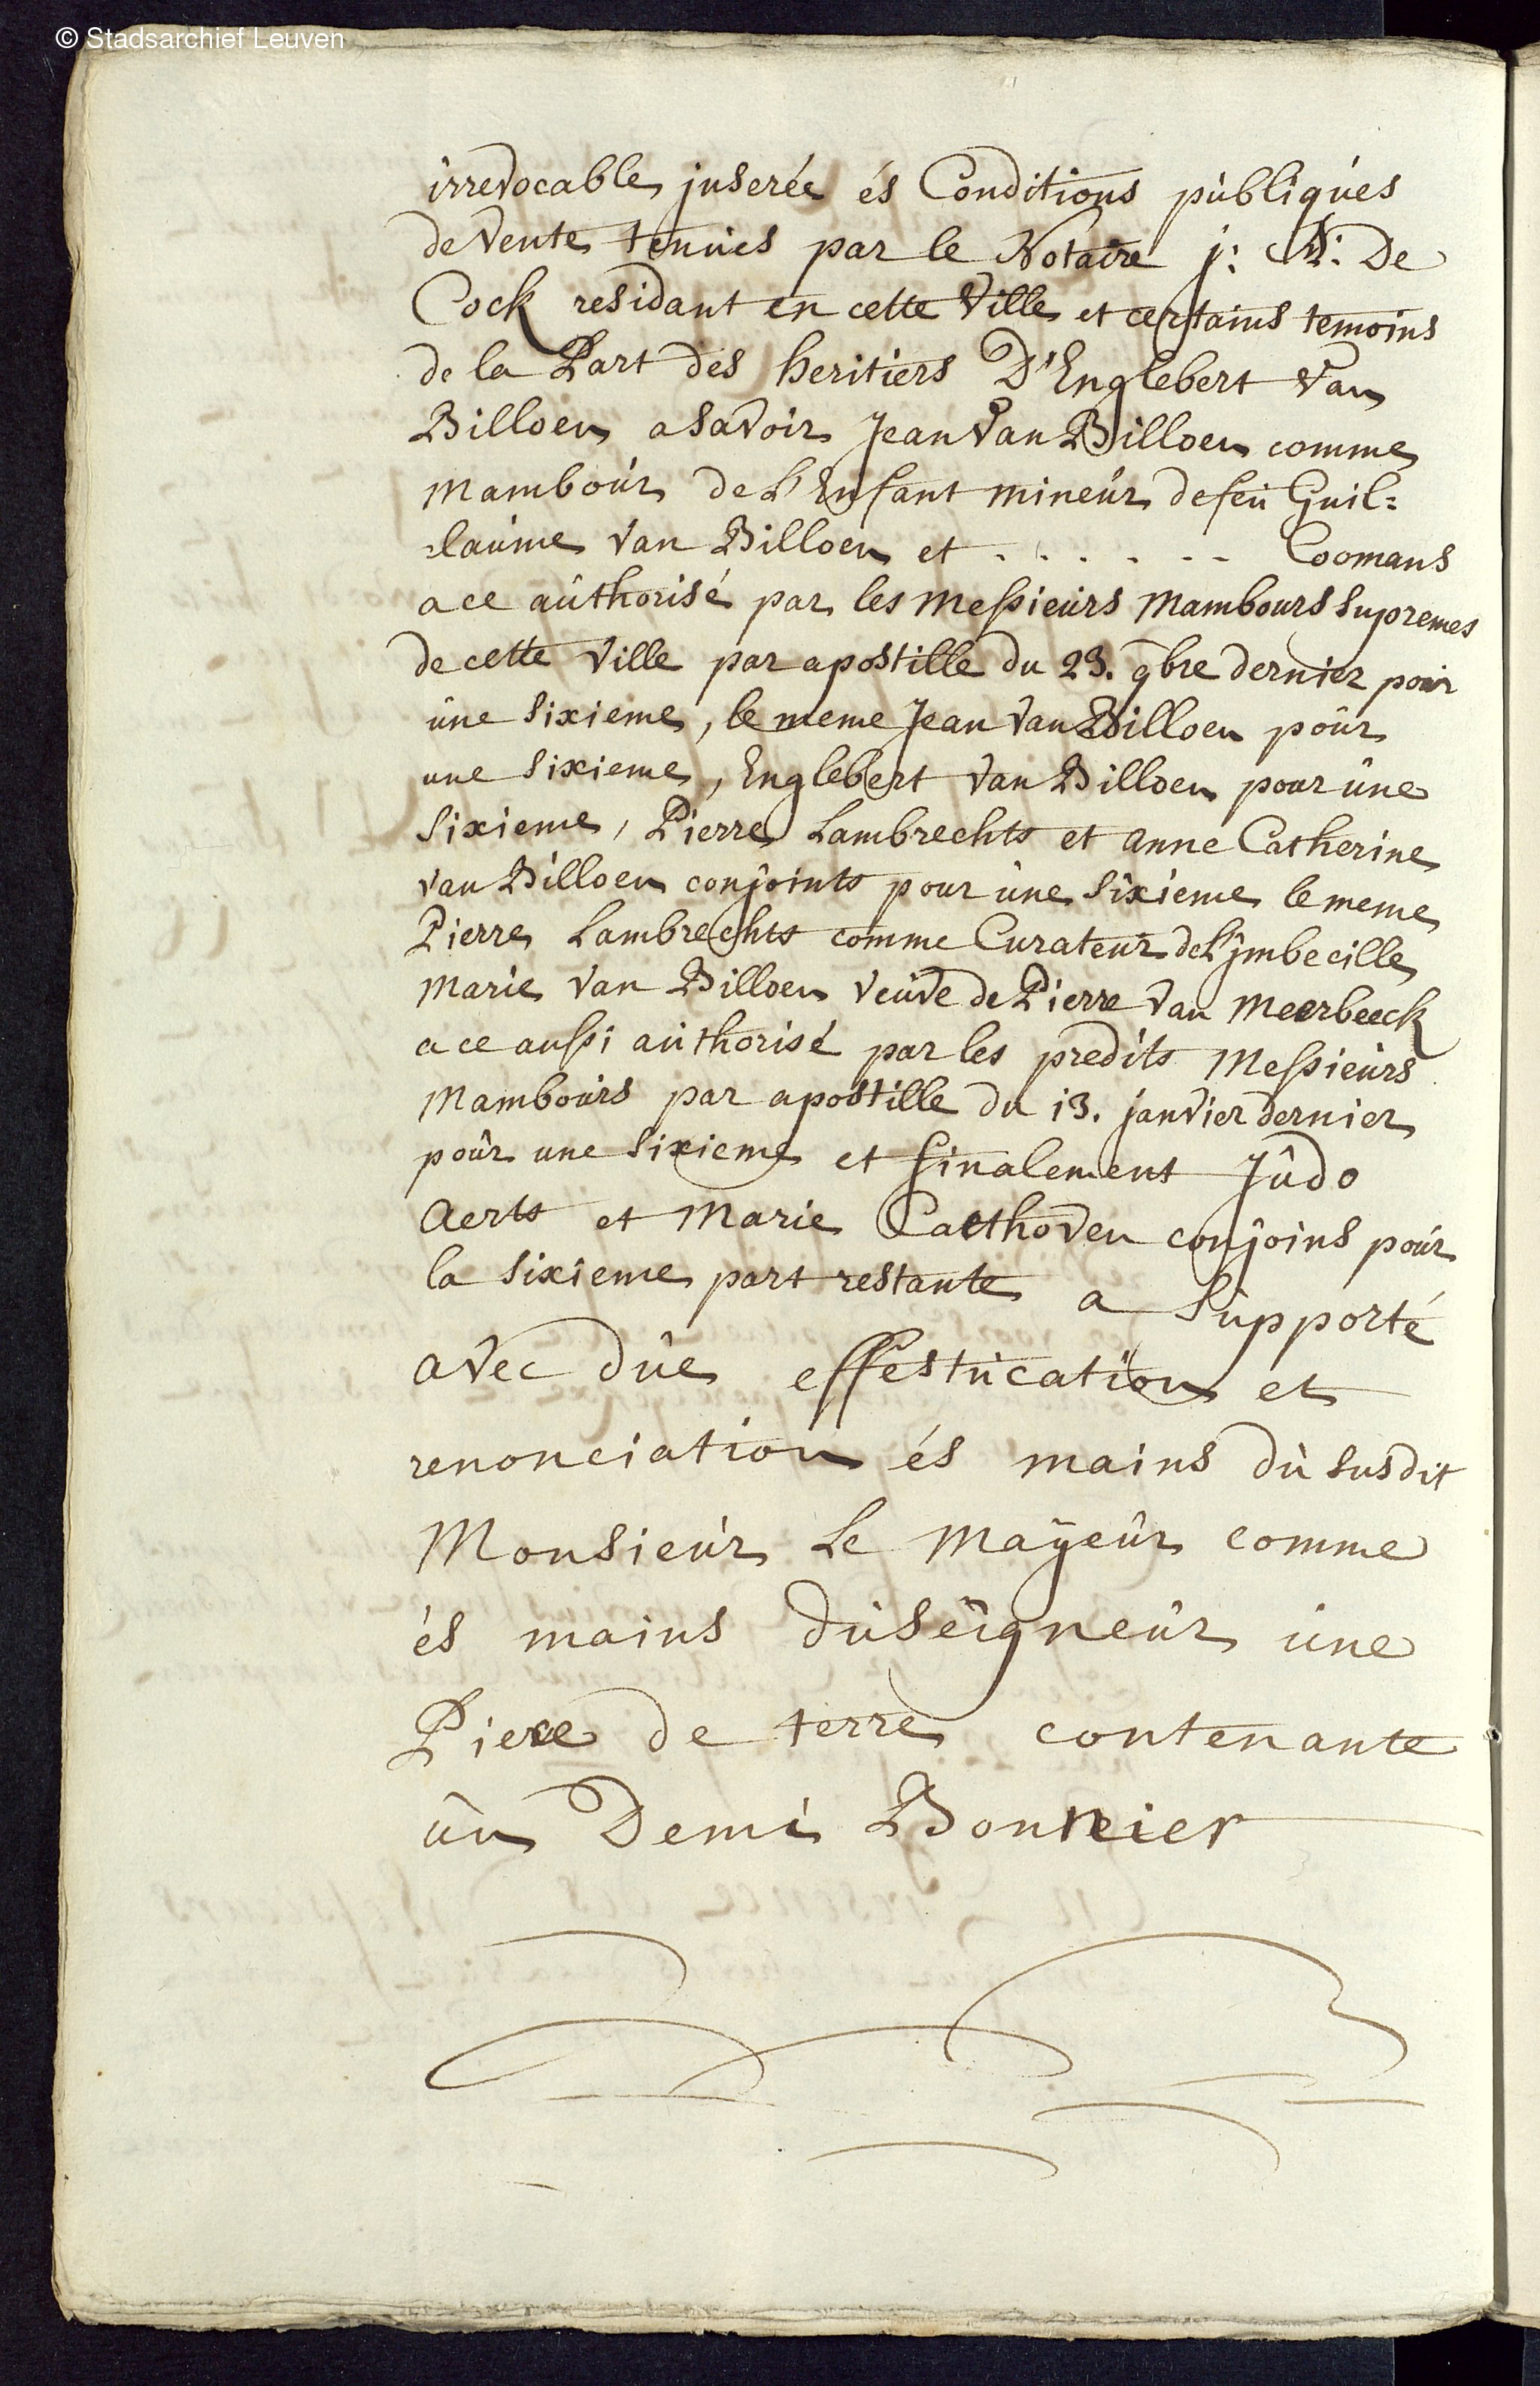 © Stadsarchief Leuven
irrevocable inserée és Conditions publiques
de vente tenues par le Notaire j: N: De
Cock residant en cette Ville et certains temoins
de la Part des heritiers D'Englebert Van
Billoen a savoir Jean Van Billoen comme
Mambour de L'Enfant mineur de feu Guil=
=laume Van Billoen et . . . . . . Coomans
a ce authorisé par les Messieurs Mambours Supremes
de cette Ville par apostille du 23. 9bre dernier pour
une Sixieme, le meme Jean Van Billoen pour
une Sixieme, Englebert Van Billoen pour une
Sixieme, Pierre Lambrechts et Anne Catherine
Van Billoen conjoints pour une Sixieme le meme
Pierre Lambrechts comme Curateur de L'jmbecille
Marie Van Billoen Veuve de Pierre Van Meerbeeck
a ce aussi authorisé par les predits Messieurs
Mambours par apostille du 13. janvier dernier
pour une Sixieme et finalement Judo
Aerts et Marie Casthoven conjoins pour
la Sixieme part restante a Supporté
avec düe effestucation et
renonciation és mains du Susdit
Monsieur Le Mayeur comme
és mains du Seigneur une
Piece de terre contenante
un Demi Bonnier